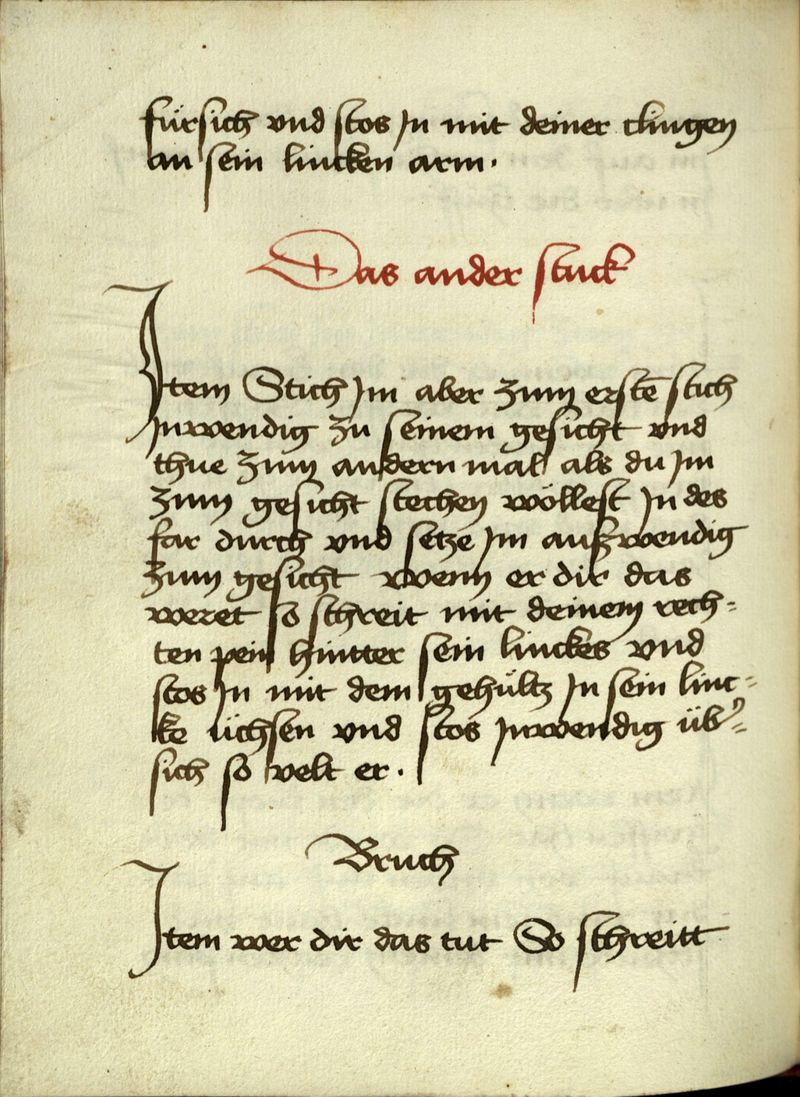 fürsich vnd stos Jn mit deiner clingen
an sein lincken arm.
Das ander stuck
Jtem Stich Jm aber zum erstē stich
Jnwendig zu seinem gesicht vnd
thue zum andern mal als du Jm
zum gesicht stechen wöllest Jn des
far durch vnd setze Jm außwendig
zum gesicht wenn er dir das
weret so schreit mit deinem rech=
ten pein hintter sein linckes vnd
stos Jn mit dem gehültz Jn sein linc=
ke üchsen vnd stos Jnwendig üb᾽=
sich so velt er.
Bruch
Jtem wer dir das tut So schreitt